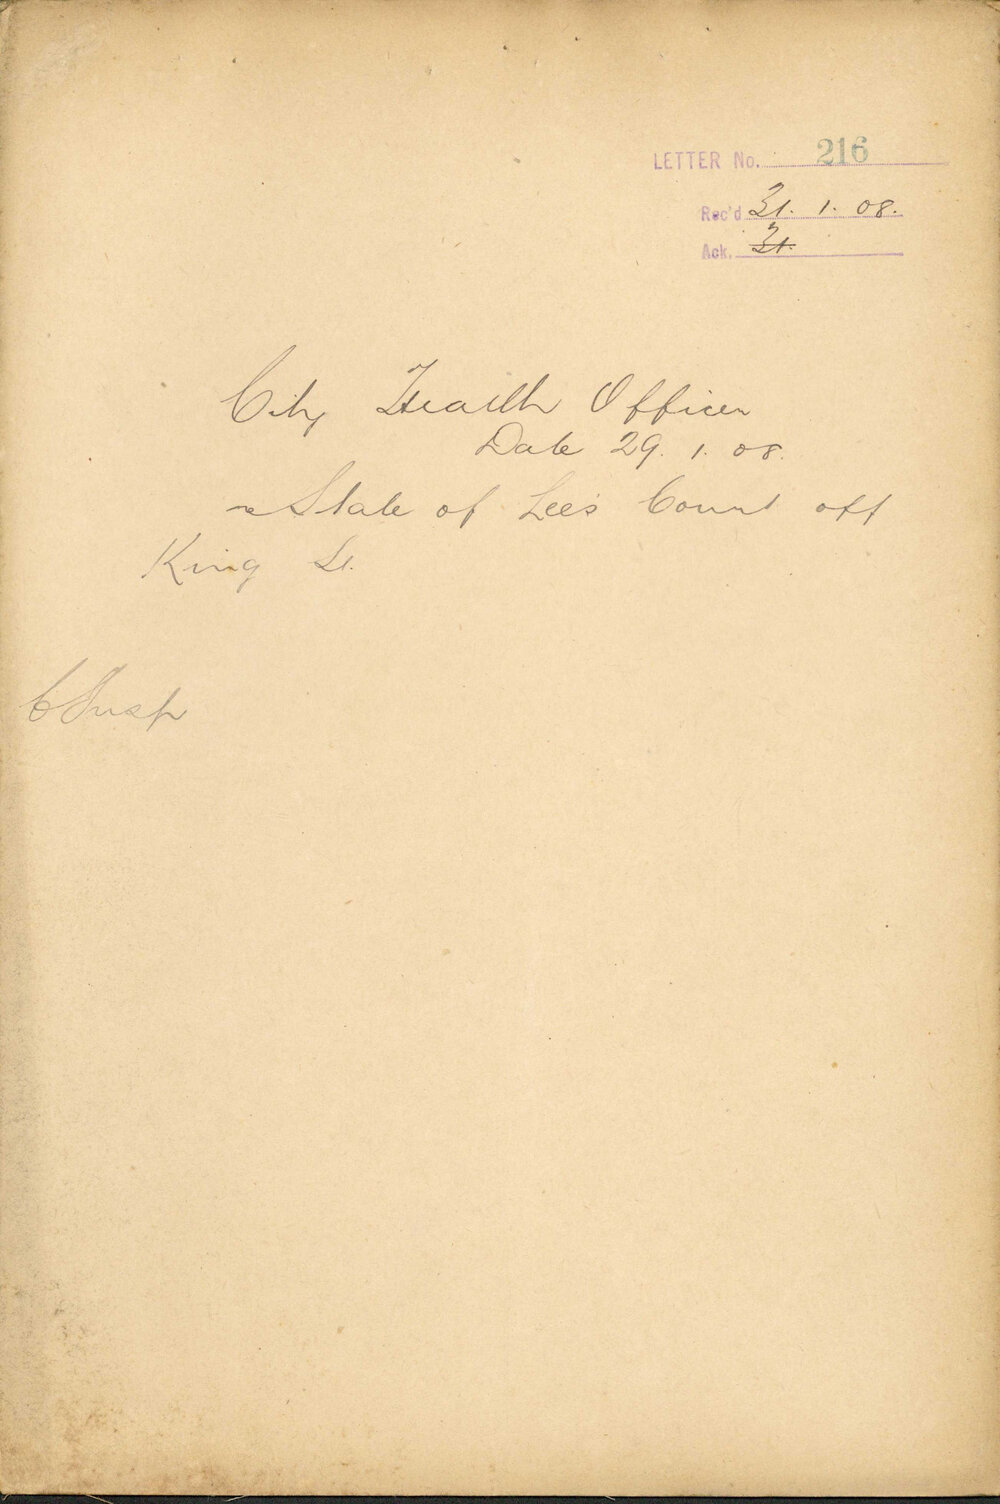 LETTER No. 216
Rec'd 31. 1. 08.
Ack. 31.
City Health Officer
Date 29. 1. 08.
re State of Lee's Court off
King St.
C Insp